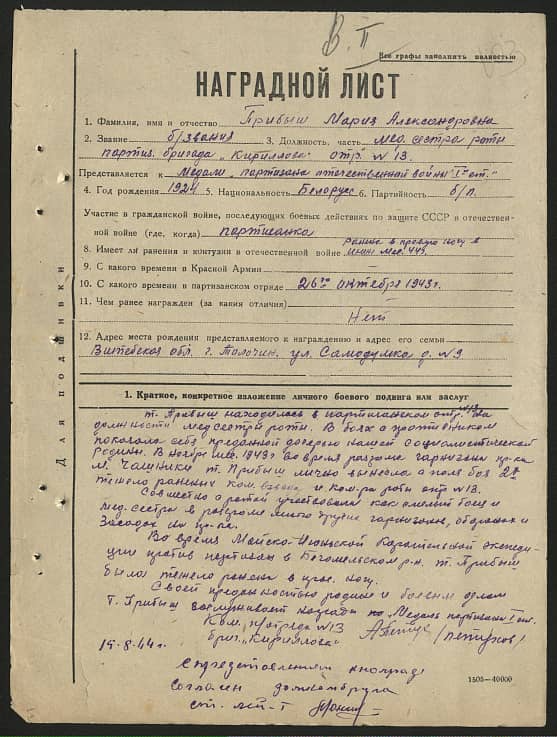 В. II
Все графы заполнять полностью
НАГРАДНОЙ ЛИСТ
1. Фамилия, имя и отчество Прибыш Мария Александровна
2. Звание б/звания 3. Должность, часть мед. сестра роты
партиз. бригада "Кириллова" отр. N 13.
Представляется к Медали "партизана отечественной войны I ст."
4. Год рождения 1924 5. Национальность Белорус 6. Партийность б/п.
Участие в гражданской войне, последующих боевых действиях по защите СССР в отечествен-
ной войне (где, когда) партизанка
8. Имеет ли ранения и контузии в отечественной войне ранена в правую ногу в
мес. 44г.
9. С какого времени в Красной Армии
10. С какого времени в партизанском отряде 26го октября 1943г.
11. Чем ранее награжден (за какия отличия)
Нет
12. Адрес места рождения представляемого к награждению и адрес его семьи
Витебская обл. г. Толочин. ул. Самодумка д. N 9
Для подшивки
1. Краткое, конкретное изложение личного боевого подвига или заслуг
т. Прибыш находилась в партизанском отр. N13 на
должности мед сестры роты. В боях с противником
показала себя преданной дочерью нашей социалистической
родины. В ноябре мес. 1943г во время разгрома гарнизона пр-ка
м. Чашники т. Прибыш лично вынесла с поля боя 2х
тяжело раненых ком. взвода и ком-ра роты отр N 13.
Совместно с ротой участвовала как смелый боец и
мед. сестра в разгроме гарнизон, оборонах и
засадах на пр-ка.
Во время Майско-Июньской карательной экспеди-
ции против партизан в Бегомельском р-н. т. Прибыш
была тяжело ранена в ногу.
Своей преданностью родине и боевым делам
т. Прибыш заслуживает награды Медаль партизана I ст.
К-р п/отряда N 13
бриг. "Кириллова" /Петухов/
15-8-44г.
С представлением к награде
согласен
ст. лей-т
1505—40000